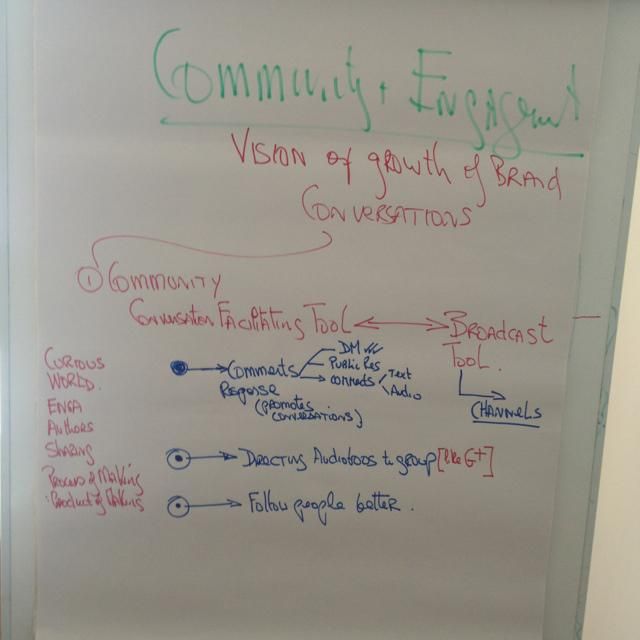 Community + Engagemt
Vision of growth of Brand
Conversations
① Community
Conversation Facilitating Tool ↔ Broadcast
Tool.
Channels
Curious
World.
Enga
Authors
Sharing
Process of Making
Product of Making
Comments
Response
(promotes
conversations)
DM
Public Res
Text
Audio
Directing Audioboos to group [like G+]
Follow people better.